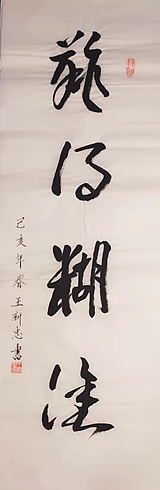 難得糊塗
己亥年春王新忠書